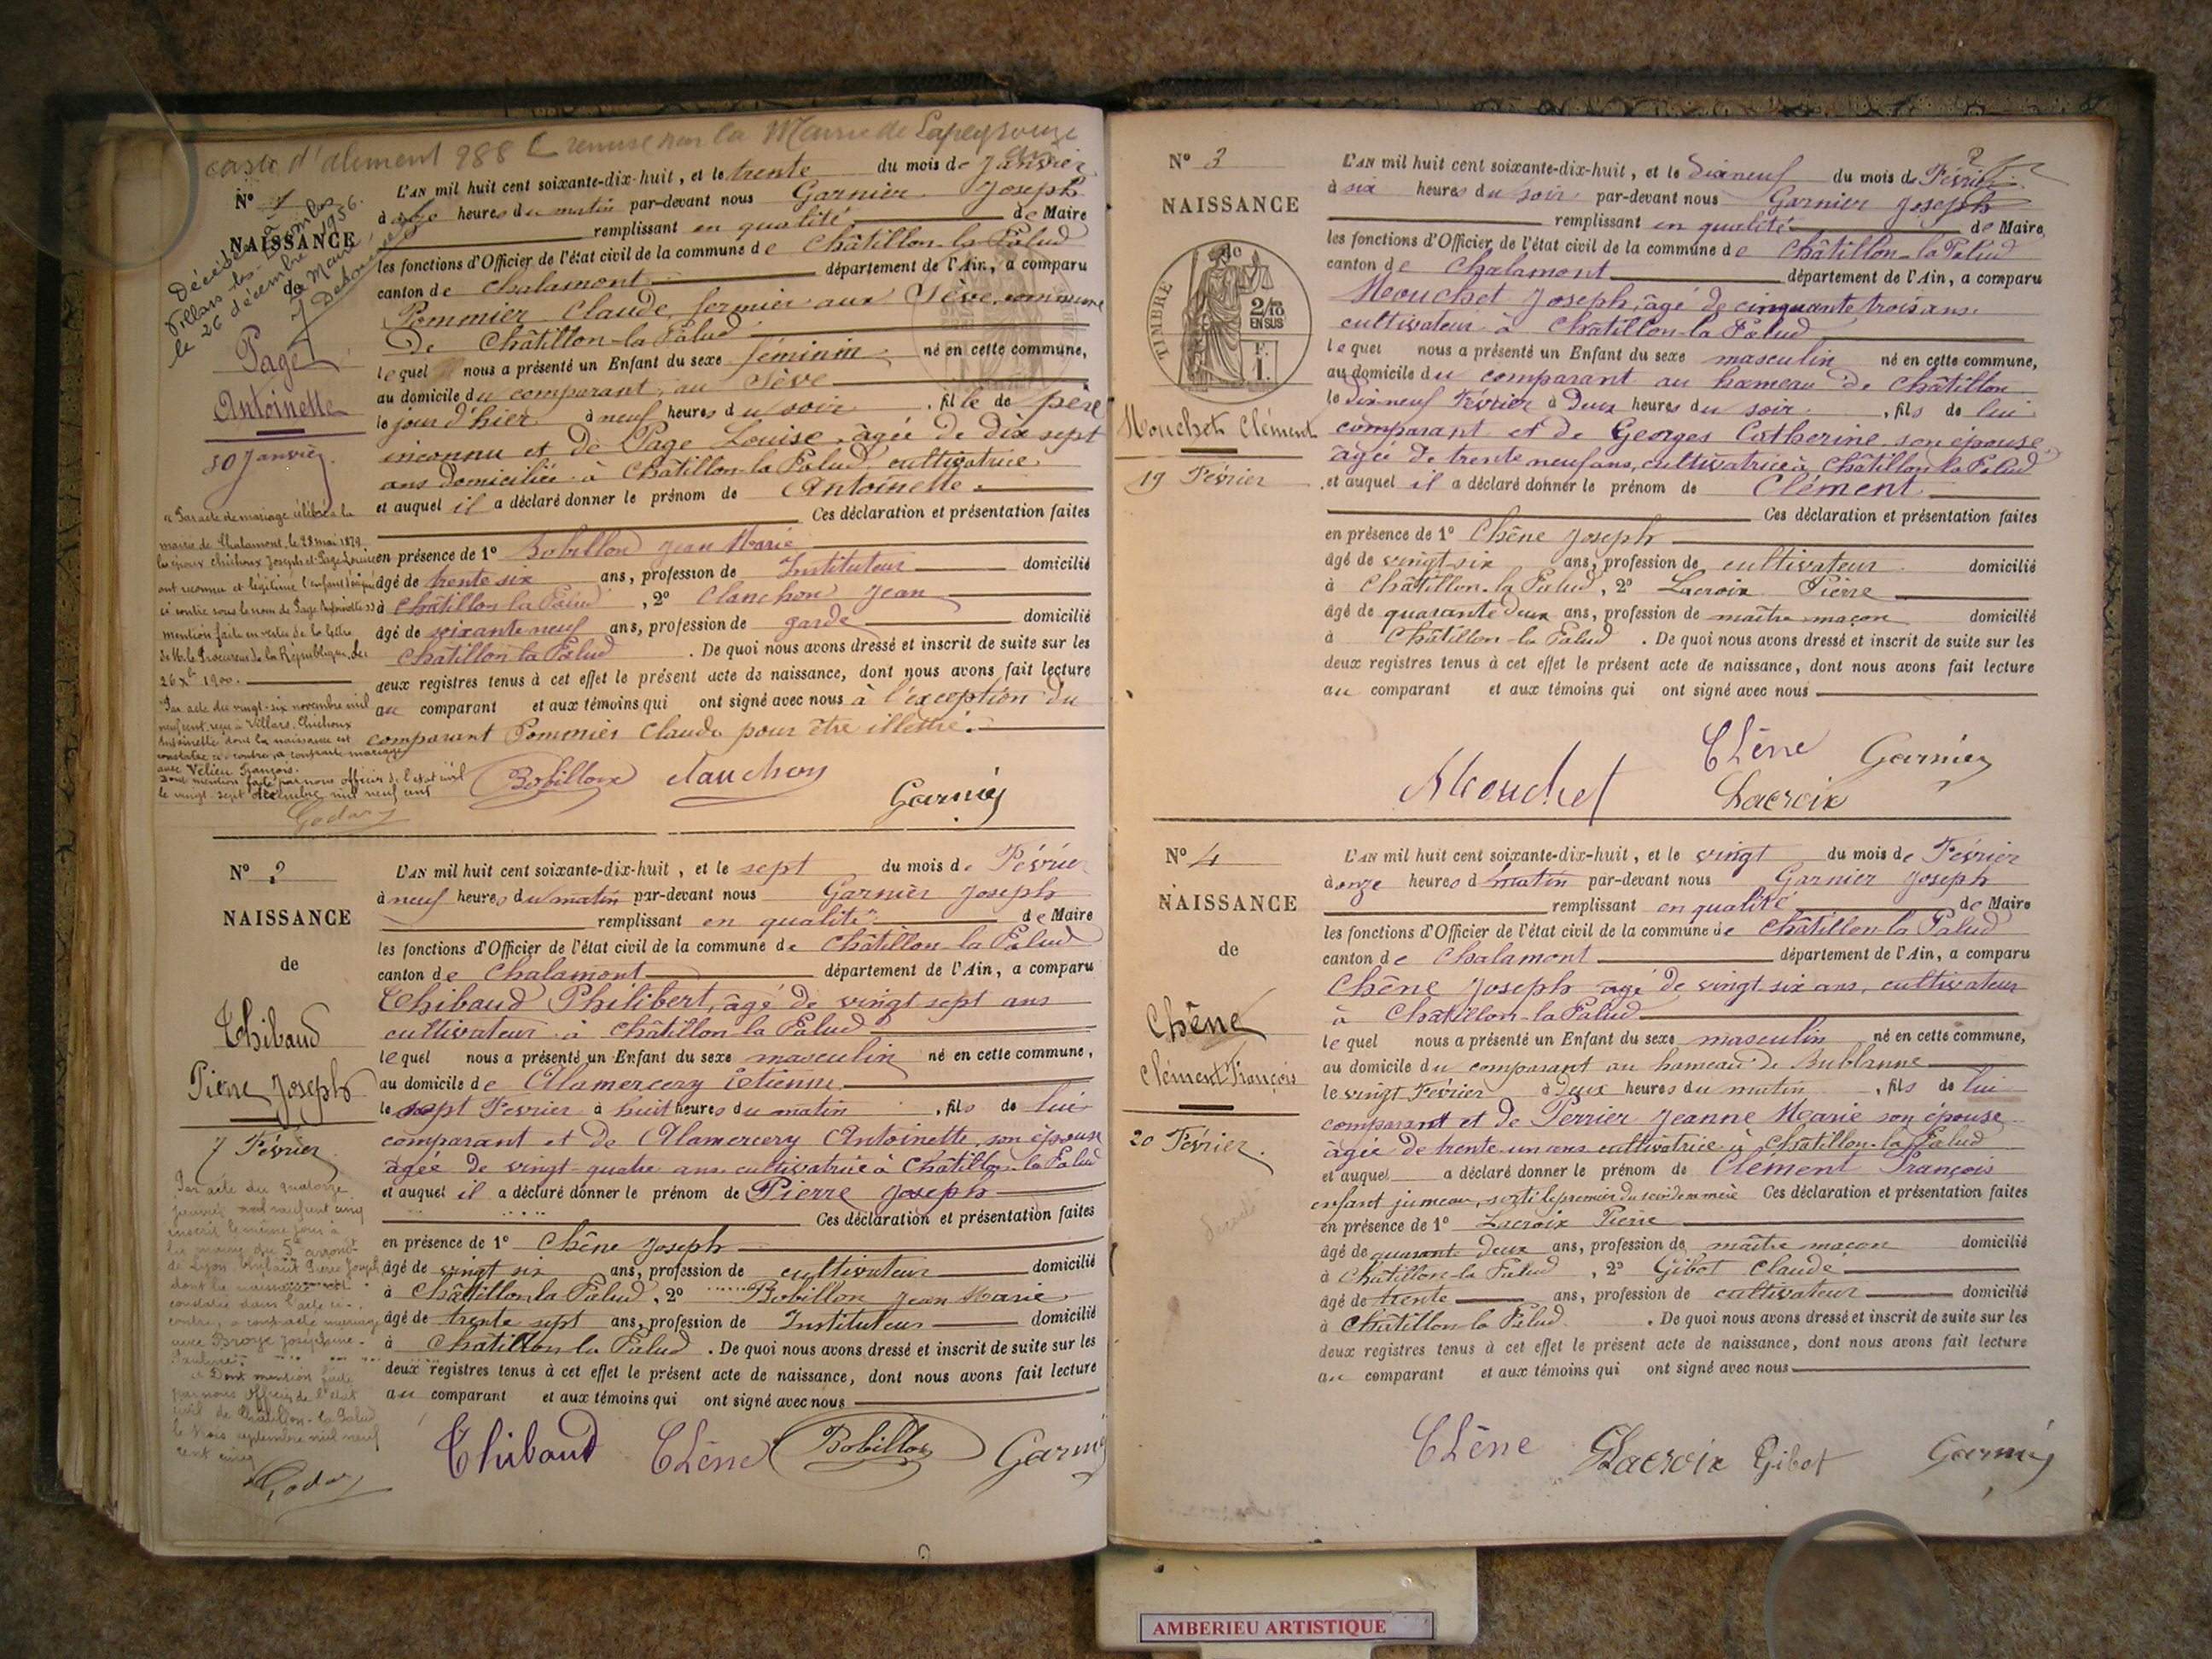 carte d'aliment 988 remise par la Mairie de Lapeyrouse
N° 1
NAISSANCE
de
Décédée à
Villars-les-Dombes
le 26 décembre 1956.
Le Maire,
Page
Antoinette
30 Janvier
« Par acte de mariage célébré à la
mairie de Chalamont, le 28 mai 1879
les époux Chichoux Joseph et Page Louise
ont reconnu et légitimé l'enfant désigné
ci contre sous le nom de Page Antoinette »
mention faite en vertu de la lettre
de Mr le Procureur de la République, du
26 Xbre 1900.
Par acte du vingt-six novembre mil
neuf cent reçu à Villars, Chichoux
Antoinette dont la naissance est
constatée ci-contre, a contracté mariage
avec Velien François.
Dont mention faite par nous officier de l'état civil
le vingt-sept décembre mil neuf cent
Godar
L'AN mil huit cent soixante-dix-huit, et le trente du mois de Janvier
à heures du matin par-devant nous Garnier Joseph
remplissant en qualité de Maire
les fonctions d'Officier de l'état civil de la commune de Châtillon-la-Palud
canton de Chalamont département de l'Ain, a comparu
Pommier Claude, fermier aux Sève, commune
de Châtillon-la-Palud
lequel nous a présenté un Enfant du sexe féminin né en cette commune,
au domicile du comparant, au Sève
le jour d'hier à neuf heures du soir, fille de père
inconnu et de Page Louise, âgée de dix sept
ans domiciliée à Châtillon-la-Palud, cultivatrice
et auquel il a déclaré donner le prénom de Antoinette.
Ces déclaration et présentation faites
en présence de 1° Bobillon Jean Marie
âgé de trente six ans, profession de Instituteur domicilié
à Châtillon la Palud, 2° Clanchon Jean
âgé de soixante neuf ans, profession de garde domicilié
Châtillon la Palud. De quoi nous avons dressé et inscrit de suite sur les
deux registres tenus à cet effet le présent acte de naissance, dont nous avons fait lecture
au comparant et aux témoins qui ont signé avec nous à l'exception du
comparant Pommier Claude pour être illettré.
Bobillon Clanchon
Garnier
N° 2
NAISSANCE
de
Thibaud
Pierre Joseph
7 Février
Par acte du quatorze
janvier mil neuf cent cinq
inscrit le même jour à
la mairie du 5e arrondt
de Lyon Thibaud Pierre Joseph
dont la naissance est
constatée dans l'acte ci-
contre, a contracté mariage
avec Broye Joséphine
Pauline
Dont mention faite
par nous Officier de l'état
civil de Châtillon-la-Palud
le trois septembre mil neuf
cent cinq
Godar
L'AN mil huit cent soixante-dix-huit, et le sept du mois de Février
à neuf heures du matin par-devant nous Garnier Joseph
remplissant en qualité de Maire
les fonctions d'Officier de l'état civil de la commune de Châtillon-la-Palud
canton de Chalamont département de l'Ain, a comparu
Thibaud Philibert, âgé de vingt sept ans
cultivateur à Châtillon-la-Palud
lequel nous a présenté un Enfant du sexe masculin né en cette commune,
au domicile de Alamercery Etienne
le sept Février à huit heures du matin, fils de lui
comparant et de Alamercery Antoinette, son épouse
âgée de vingt-quatre ans cultivatrice à Châtillon-la-Palud
et auquel il a déclaré donner le prénom de Pierre Joseph
Ces déclaration et présentation faites
en présence de 1° Chêne Joseph
âgé de vingt six ans, profession de cultivateur domicilié
à Châtillon la Palud, 2° Bobillon Jean Marie
âgé de trente sept ans, profession de Instituteur domicilié
à Châtillon la Palud. De quoi nous avons dressé et inscrit de suite sur les
deux registres tenus à cet effet le présent acte de naissance, dont nous avons fait lecture
au comparant et aux témoins qui ont signé avec nous
Thibaud Chêne Bobillon Garnier
N° 3
NAISSANCE
de
TIMBRE
2/10
EN SUS
F.
1.
Mouchet Clément
19 Février
L'AN mil huit cent soixante-dix-huit, et le dixneuf du mois de Février
à six heures du soir par-devant nous Garnier Joseph
remplissant en qualité de Maire
les fonctions d'Officier de l'état civil de la commune de Châtillon-la-Palud
canton de Chalamont département de l'Ain, a comparu
Mouchet Joseph, âgé de cinquante trois ans
cultivateur à Châtillon-la-Palud
lequel nous a présenté un Enfant du sexe masculin né en cette commune,
au domicile du comparant au hameau de Châtillon
le dixneuf Février à deux heures du soir, fils de lui
comparant et de Georges Catherine son épouse
âgée de trente neuf ans, cultivatrice à Châtillon la Palud
et auquel il a déclaré donner le prénom de Clément
Ces déclaration et présentation faites
en présence de 1° Chêne Joseph
âgé de vingt six ans, profession de cultivateur domicilié
à Châtillon-la-Palud, 2° Lacroix Pierre
âgé de quarante deux ans, profession de maître maçon domicilié
à Châtillon-la Palud. De quoi nous avons dressé et inscrit de suite sur les
deux registres tenus à cet effet le présent acte de naissance, dont nous avons fait lecture
au comparant et aux témoins qui ont signé avec nous
Chêne Garnier
Mouchet Lacroix
N° 4
NAISSANCE
de
Chêne
Clément François
20 Février.
L'AN mil huit cent soixante-dix-huit, et le vingt du mois de Février
à onze heures d matin par-devant nous Garnier Joseph
remplissant en qualité de Maire
les fonctions d'Officier de l'état civil de la commune de Châtillon-la Palud
canton de Chalamont département de l'Ain, a comparu
Chêne Joseph âgé de vingt six ans, cultivateur
à Châtillon-la Palud
lequel nous a présenté un Enfant du sexe masculin né en cette commune,
au domicile du comparant au hameau de Bublanne
le vingt Février à deux heures du matin, fils de lui
comparant et de Perrier Jeanne Marie son épouse
âgée de trente-un ans cultivatrice à Châtillon-la-Palud
et auquel a déclaré donner le prénom de Clément François
enfant jumeau, sorti le premier du sein de sa mère Ces déclaration et présentation faites
en présence de 1° Lacroix Pierre
âgé de quarante deux ans, profession de maître maçon domicilié
à Châtillon-la Palud, 2° Gibot Claude
âgé de trente ans, profession de cultivateur domicilié
à Châtillon la Palud. De quoi nous avons dressé et inscrit de suite sur les
deux registres tenus à cet effet le présent acte de naissance, dont nous avons fait lecture
au comparant et aux témoins qui ont signé avec nous
Chêne Lacroix Gibot Garnier
AMBERIEU ARTISTIQUE